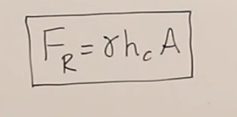 F_R = γ h_c A